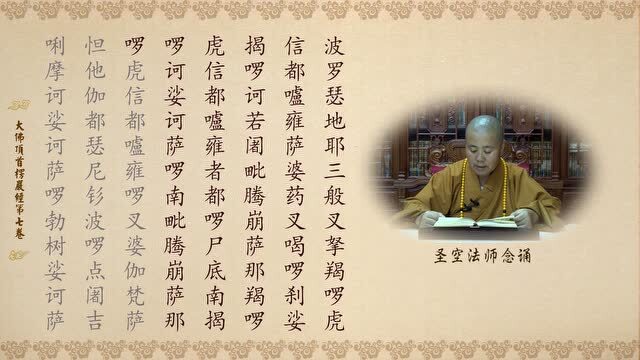 波罗瑟地耶三般叉拏羯啰虎
信都嚧雍萨婆药叉喝啰刹娑
揭啰诃若阇毗腾崩萨那羯啰
虎信都嚧雍者都啰尸底南揭
啰诃娑诃萨啰南毗腾崩萨那
啰虎信都嚧雍啰叉婆伽梵萨
怛他伽都瑟尼钐波啰点阇吉
唎摩诃娑诃萨啰勃树娑诃萨
大佛頂首楞嚴經第七卷
圣空法师念诵